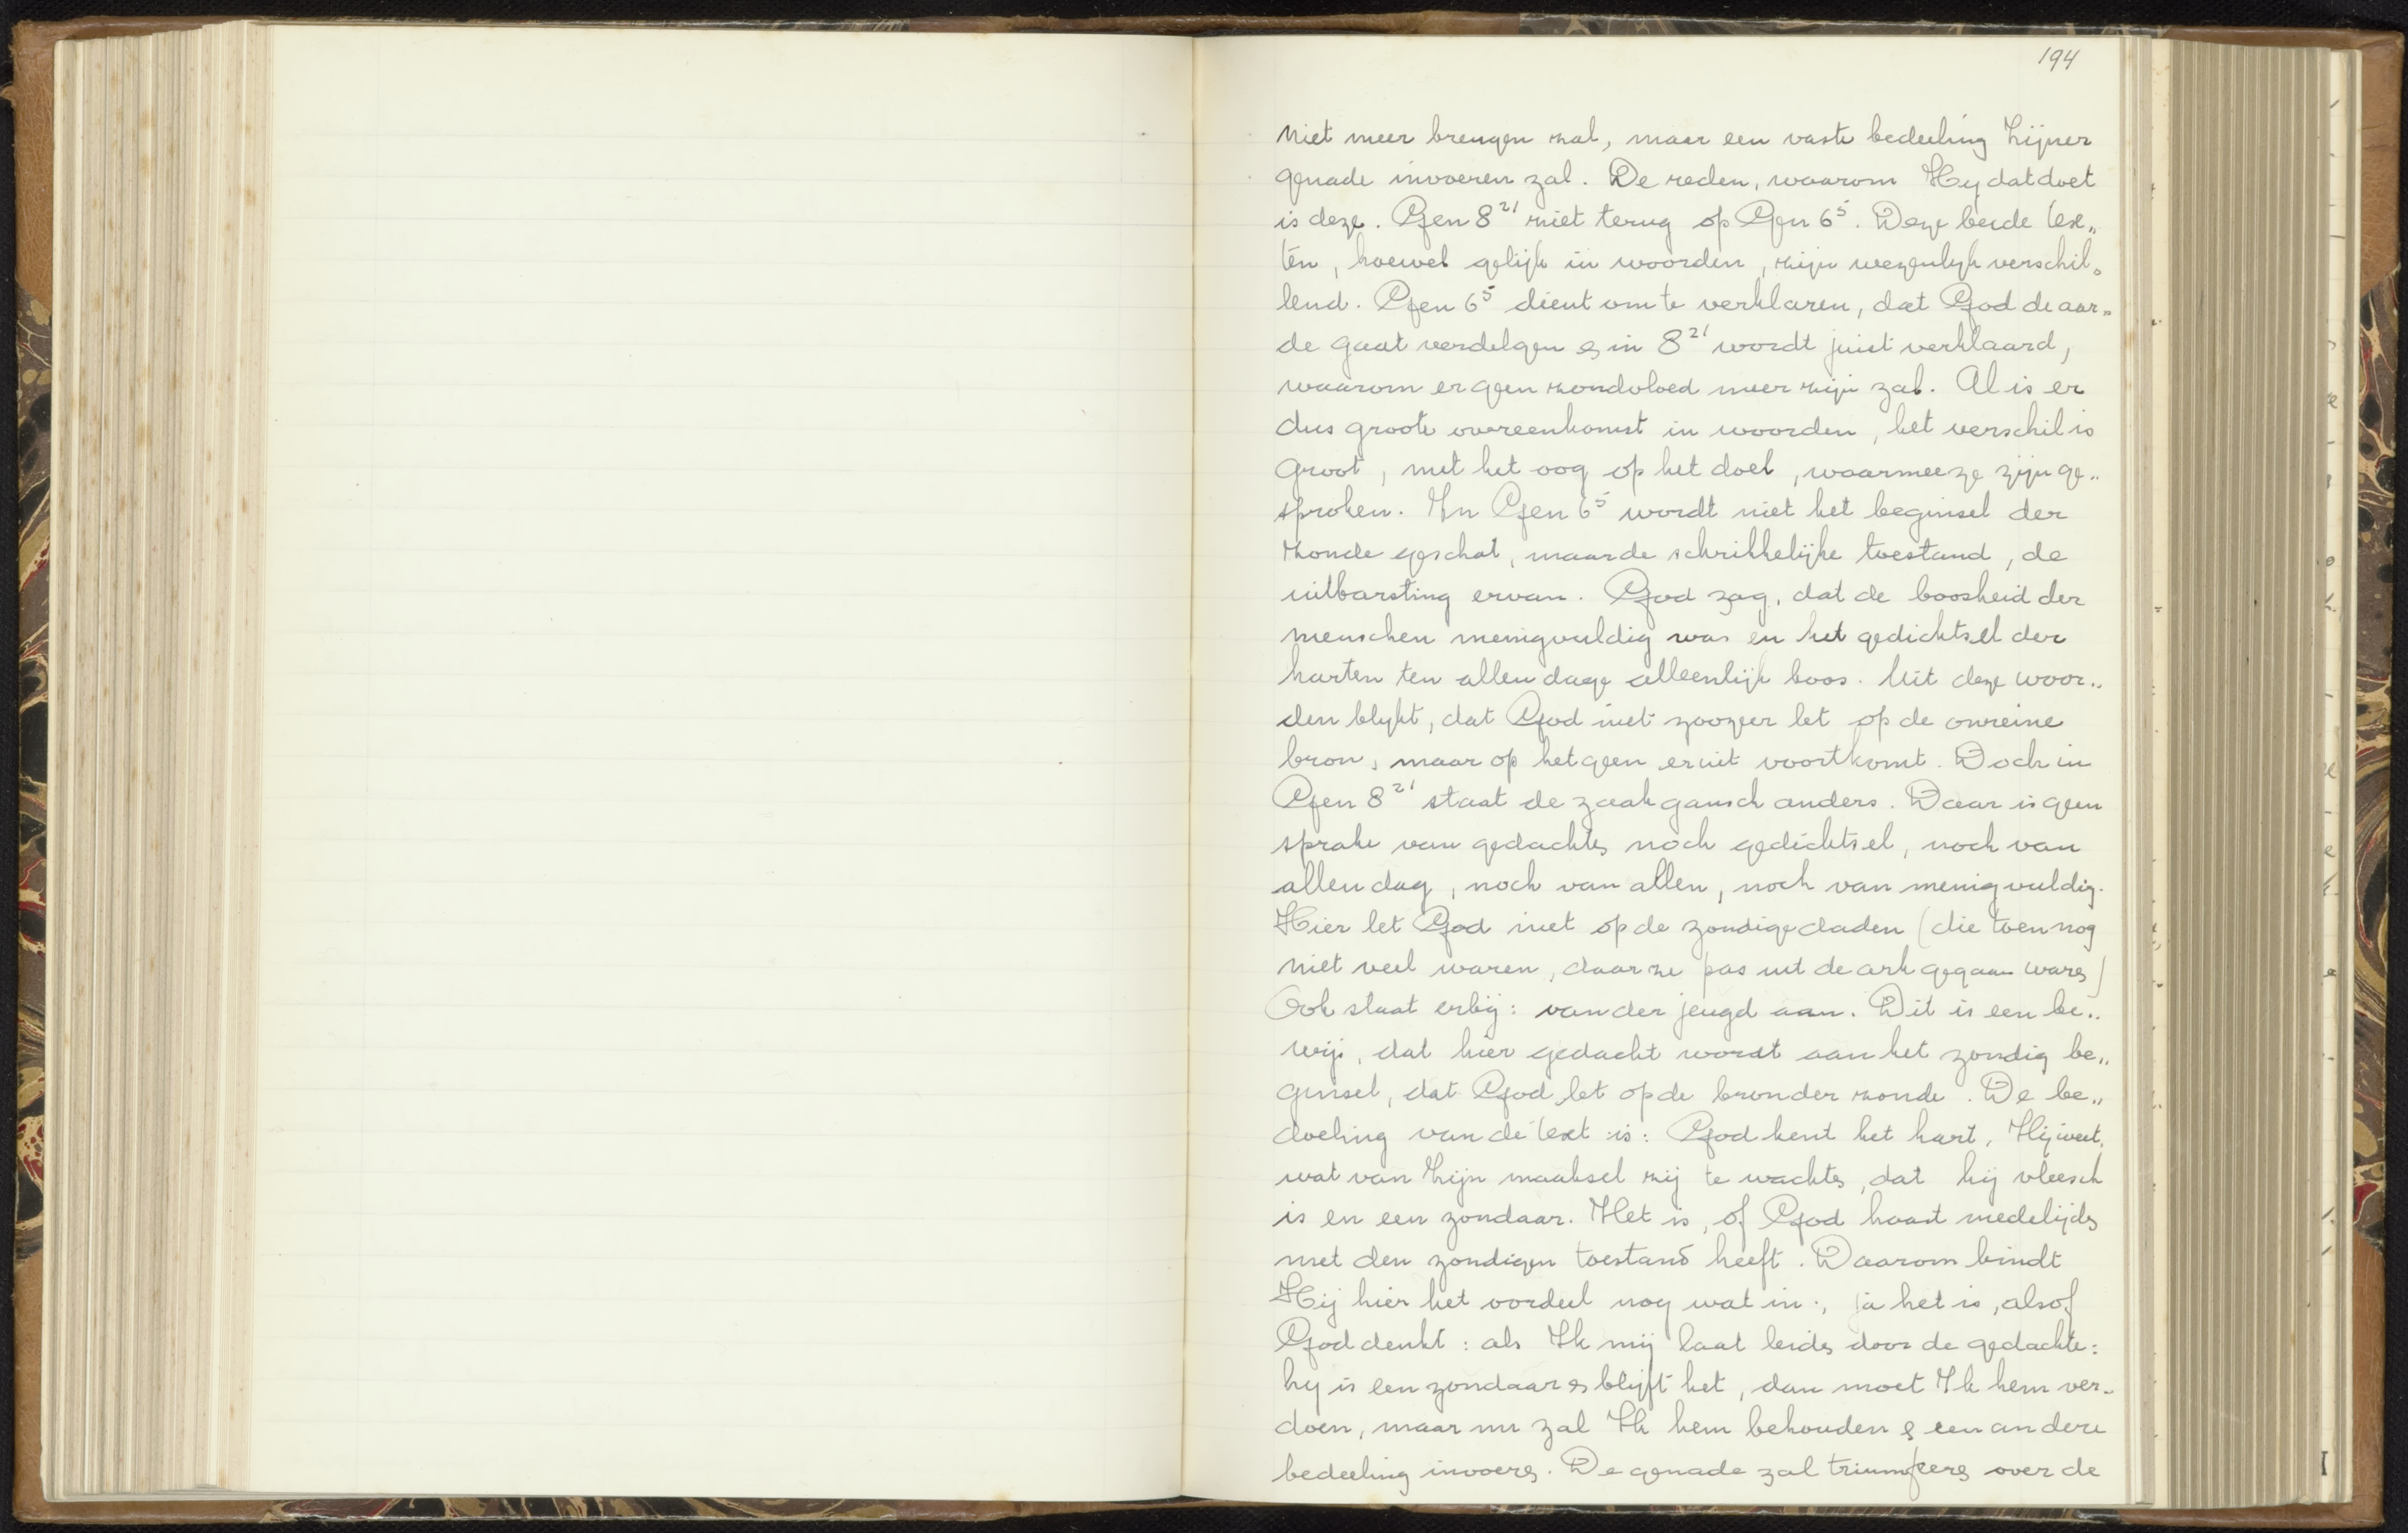 194
niet meer brengen zal, maar een vaste bedeeling Zijner
genade invoeren zal. De reden, waarom Hij dat doet
is deze. Gen 8²¹ ziet terug op Gen 6⁵. Deze beide tex„
ten, hoewel gelijk in woorden, zijn wezenlijk verschil„
lend. Gen 6⁵ dient om te verklaren, dat God de aar„
de gaat verdelgen en in 8²¹ wordt juist verklaard,
waarom er geen zondvloed meer zijn zal. Al is er
dus groote overeenkomst in woorden, het verschil is
groot, met het oog op het doel, waarmee ze zijn ge„
sproken. In Gen 6⁵ wordt niet het beginsel der
zonde geschat, maar de schrikkelijke toestand, de
uitbarsting ervan. God zag, dat de boosheid der
menschen menigvuldig was en het gedichtsel der
harten ten allen dage alleenlijk boos. Uit deze woor„
den blijkt, dat God niet zoozeer let op de onreine
bron, maar op hetgeen eruit voortkomt. Doch in
Gen 8²¹ staat de zaak gansch anders. Daar is geen
sprake van gedachten noch gedichtsel, noch van
allen dag, noch van allen, noch van menigvuldig.
Hier let God niet op de zondige daden (die toen nog
niet veel waren, daar ze pas uit de ark gegaan waren)
Ook staat erbij: van der jeugd aan. Dit is een be„
wijs, dat hier gedacht wordt aan het zondig be„
ginsel, dat God let op de bron der zonde. De be„
doeling van de text is: God kent het hart, Hij weet,
wat van Zijn maaksel zij te wachten, dat hij vleesch
is en een zondaar. Het is, of God haast medelijden
met den zondigen toestand heeft. Daarom bindt
Hij hier het oordeel nog wat in:, ja het is, alsof
God denkt: als Ik mij laat leiden door de gedachte:
hij is een zondaar en blijft het, dan moet Ik hem ver„
doen, maar nu zal Ik hem behouden en een andere
bedeeling invoeren. De genade zal triumfeeren over de